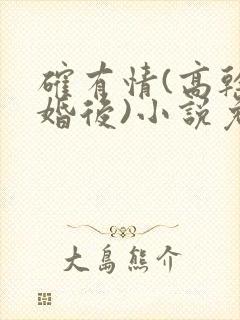 確有情(高幹
婚後)小說
大島熊介